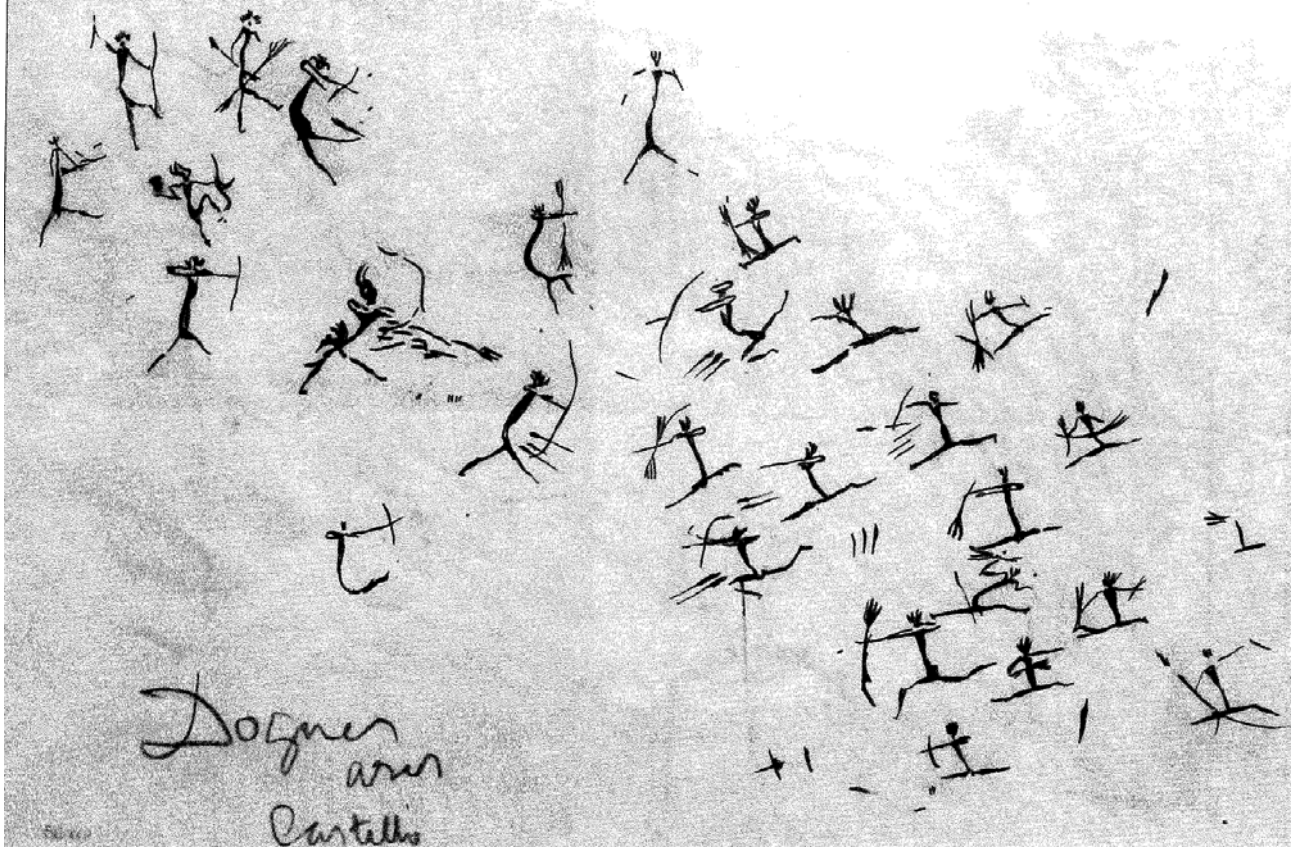 Dogues
ares
Castelló